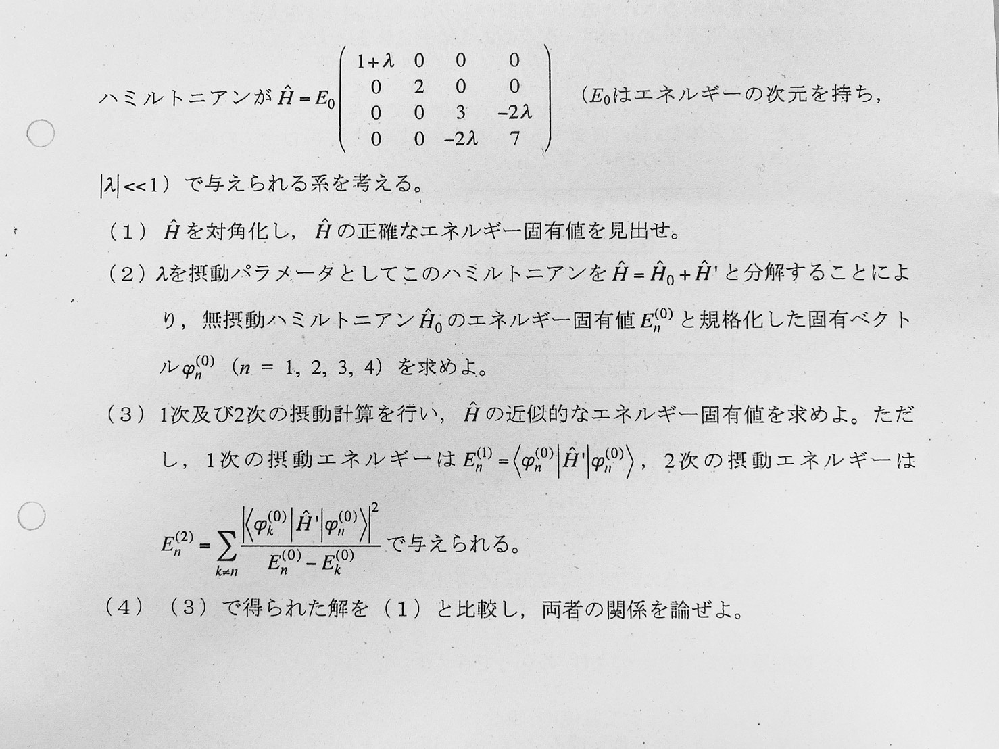 ハミルトニアンが Ĥ = E₀ ( 1+λ 0 0 0 (E₀はエネルギーの次元を持ち,
0 2 0 0
0 0 3 −2λ
0 0 −2λ 7 )
|λ|<<1)で与えられる系を考える。
(1) Ĥ を対角化し,Ĥ の正確なエネルギー固有値を見出せ。
(2) λを摂動パラメータとしてこのハミルトニアンを Ĥ = Ĥ₀ + Ĥ' と分解することによ
り,無摂動ハミルトニアン Ĥ₀ のエネルギー固有値 Eₙ⁽⁰⁾ と規格化した固有ベクト
ル φₙ⁽⁰⁾ (n = 1, 2, 3, 4) を求めよ。
(3) 1次及び2次の摂動計算を行い,Ĥ の近似的なエネルギー固有値を求めよ。ただ
し,1次の摂動エネルギーは Eₙ⁽¹⁾ = ⟨φₙ⁽⁰⁾|Ĥ'|φₙ⁽⁰⁾⟩,2次の摂動エネルギーは
Eₙ⁽²⁾ = Σ_{k≠n} |⟨φₖ⁽⁰⁾|Ĥ'|φₙ⁽⁰⁾⟩|² / (Eₙ⁽⁰⁾ − Eₖ⁽⁰⁾) で与えられる。
(4) (3)で得られた解を(1)と比較し,両者の関係を論ぜよ。